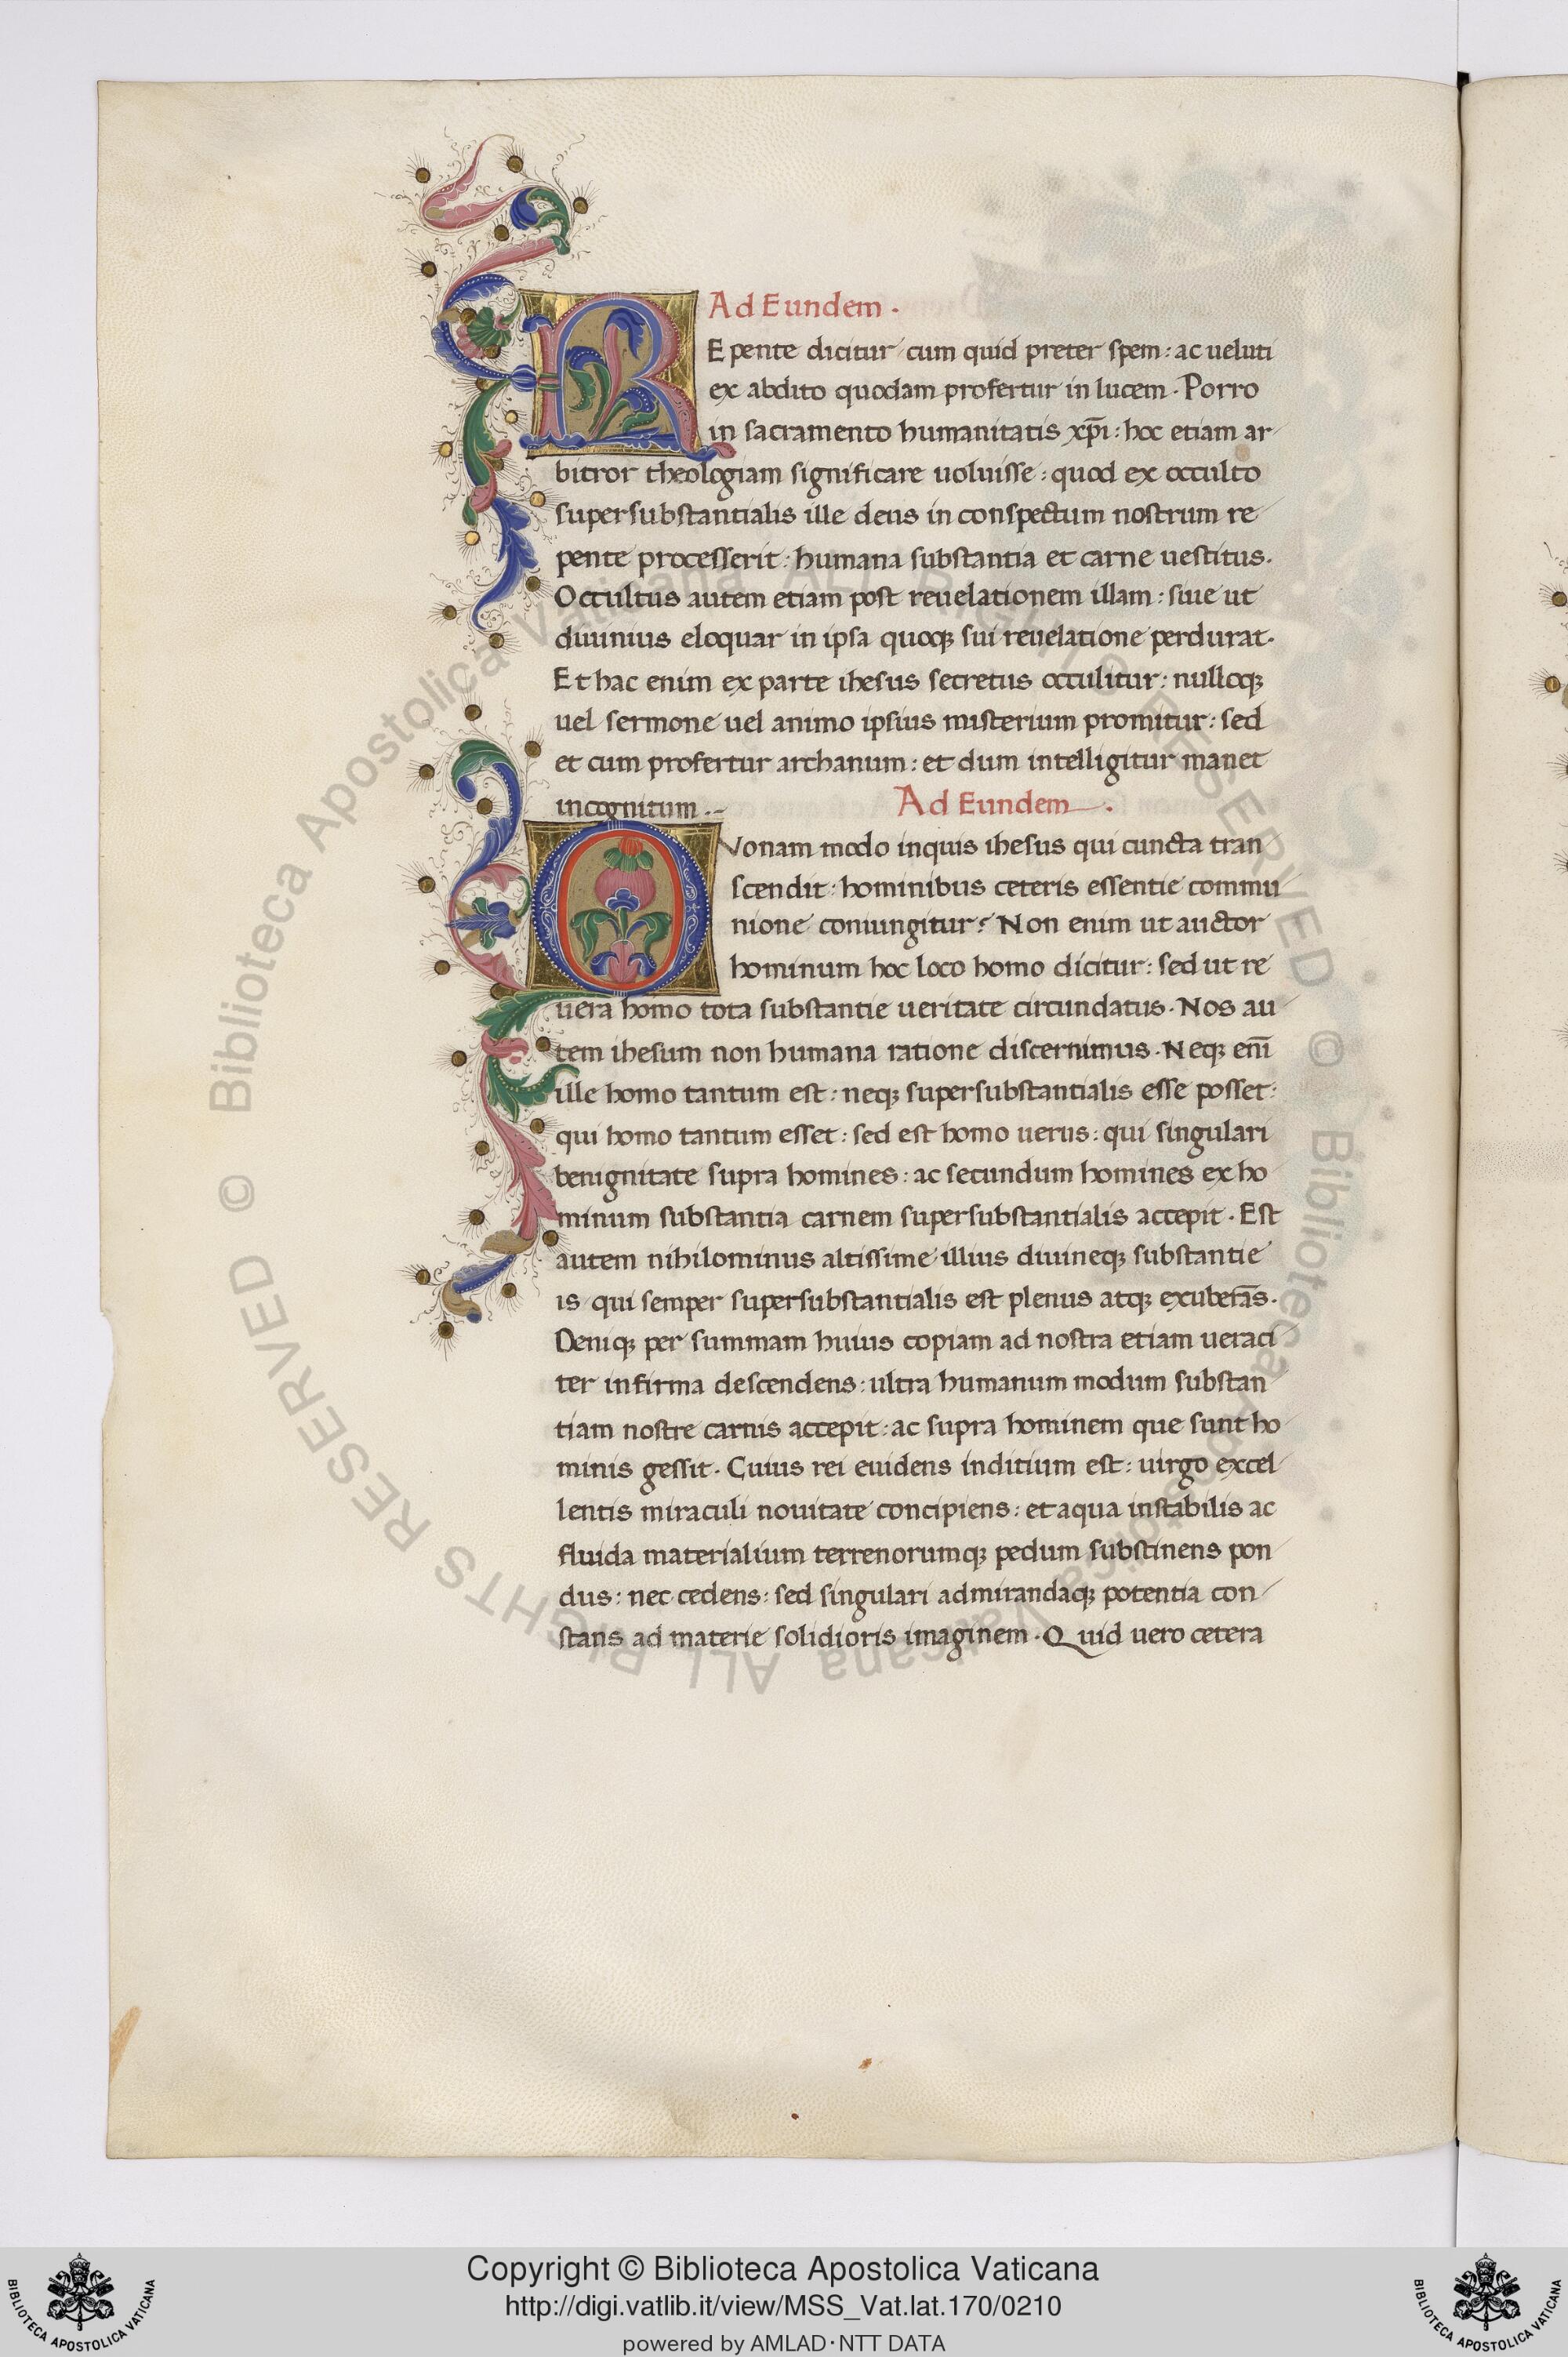 Ad Eundem ·
REpente dicitur cum quid preter spem: ac ueluti
ex abdito quodam profertur in lucem · Porro
in sacramento humanitatis xp̄i: hoc etiam ar
bitror theologiam significare uoluisse: quod ex occulto
supersubstantialis ille deus in conspectum nostrum re
pente processerit: humana substantia et carne uestitus.
Occultus autem etiam post reuelationem illam: siue ut
diuinius eloquar in ipsa quoqꝫ sui reuelatione perdurat.
Et hac enim ex parte ihesus secretus occulitur: nulloqꝫ
uel sermone uel animo ipsius misterium promitur: sed
et cum profertur archanum: et dum intelligitur manet
incognitum ·
Ad Eundem ·
QVonam modo inquis ihesus qui cuncta tran
scendit: hominibus ceteris essentie commu
nione coniungitur? Non enim ut auctor
hominum hoc loco homo dicitur: sed ut re
uera homo tota substantie ueritate circundatus. Nos au
tem ihesum non humana ratione discernimus. Neqꝫ eni̅
ille homo tantum est: neqꝫ supersubstantialis esse posset:
qui homo tantum esset: sed est homo uerus: qui singulari
benignitate supra homines: ac secundum homines ex ho
minum substantia carnem supersubstantialis accepit. Est
autem nihilominus altissime illius diuineqꝫ substantie
is qui semper supersubstantialis est plenus atqꝫ exubera̅s.
Deniqꝫ per summam huius copiam ad nostra etiam ueraci
ter infirma descendens: ultra humanum modum substan
tiam nostre carnis accepit: ac supra hominem que sunt ho
minis gessit. Cuius rei euidens inditium est: uirgo excel
lentis miraculi nouitate concipiens: et aqua instabilis ac
fluida materialium terrenorumqꝫ pedum substinens pon
dus: nec cedens: sed singulari admirandaqꝫ potentia con
stans ad materie solidioris imaginem. Quid uero cetera
© Biblioteca Apostolica Vaticana ALL RIGHTS RESERVED © Biblioteca Apostolica Vaticana ALL RIGHTS RESERVED
Copyright © Biblioteca Apostolica Vaticana
http://digi.vatlib.it/view/MSS_Vat.lat.170/0210
powered by AMLAD·NTT DATA
BIBLIOTECA APOSTOLICA VATICANA
BIBLIOTECA APOSTOLICA VATICANA